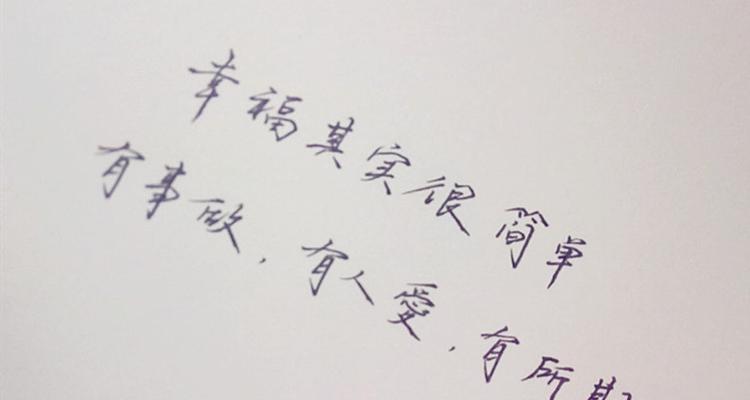 幸福其实很简單
有事做,有人愛,有所